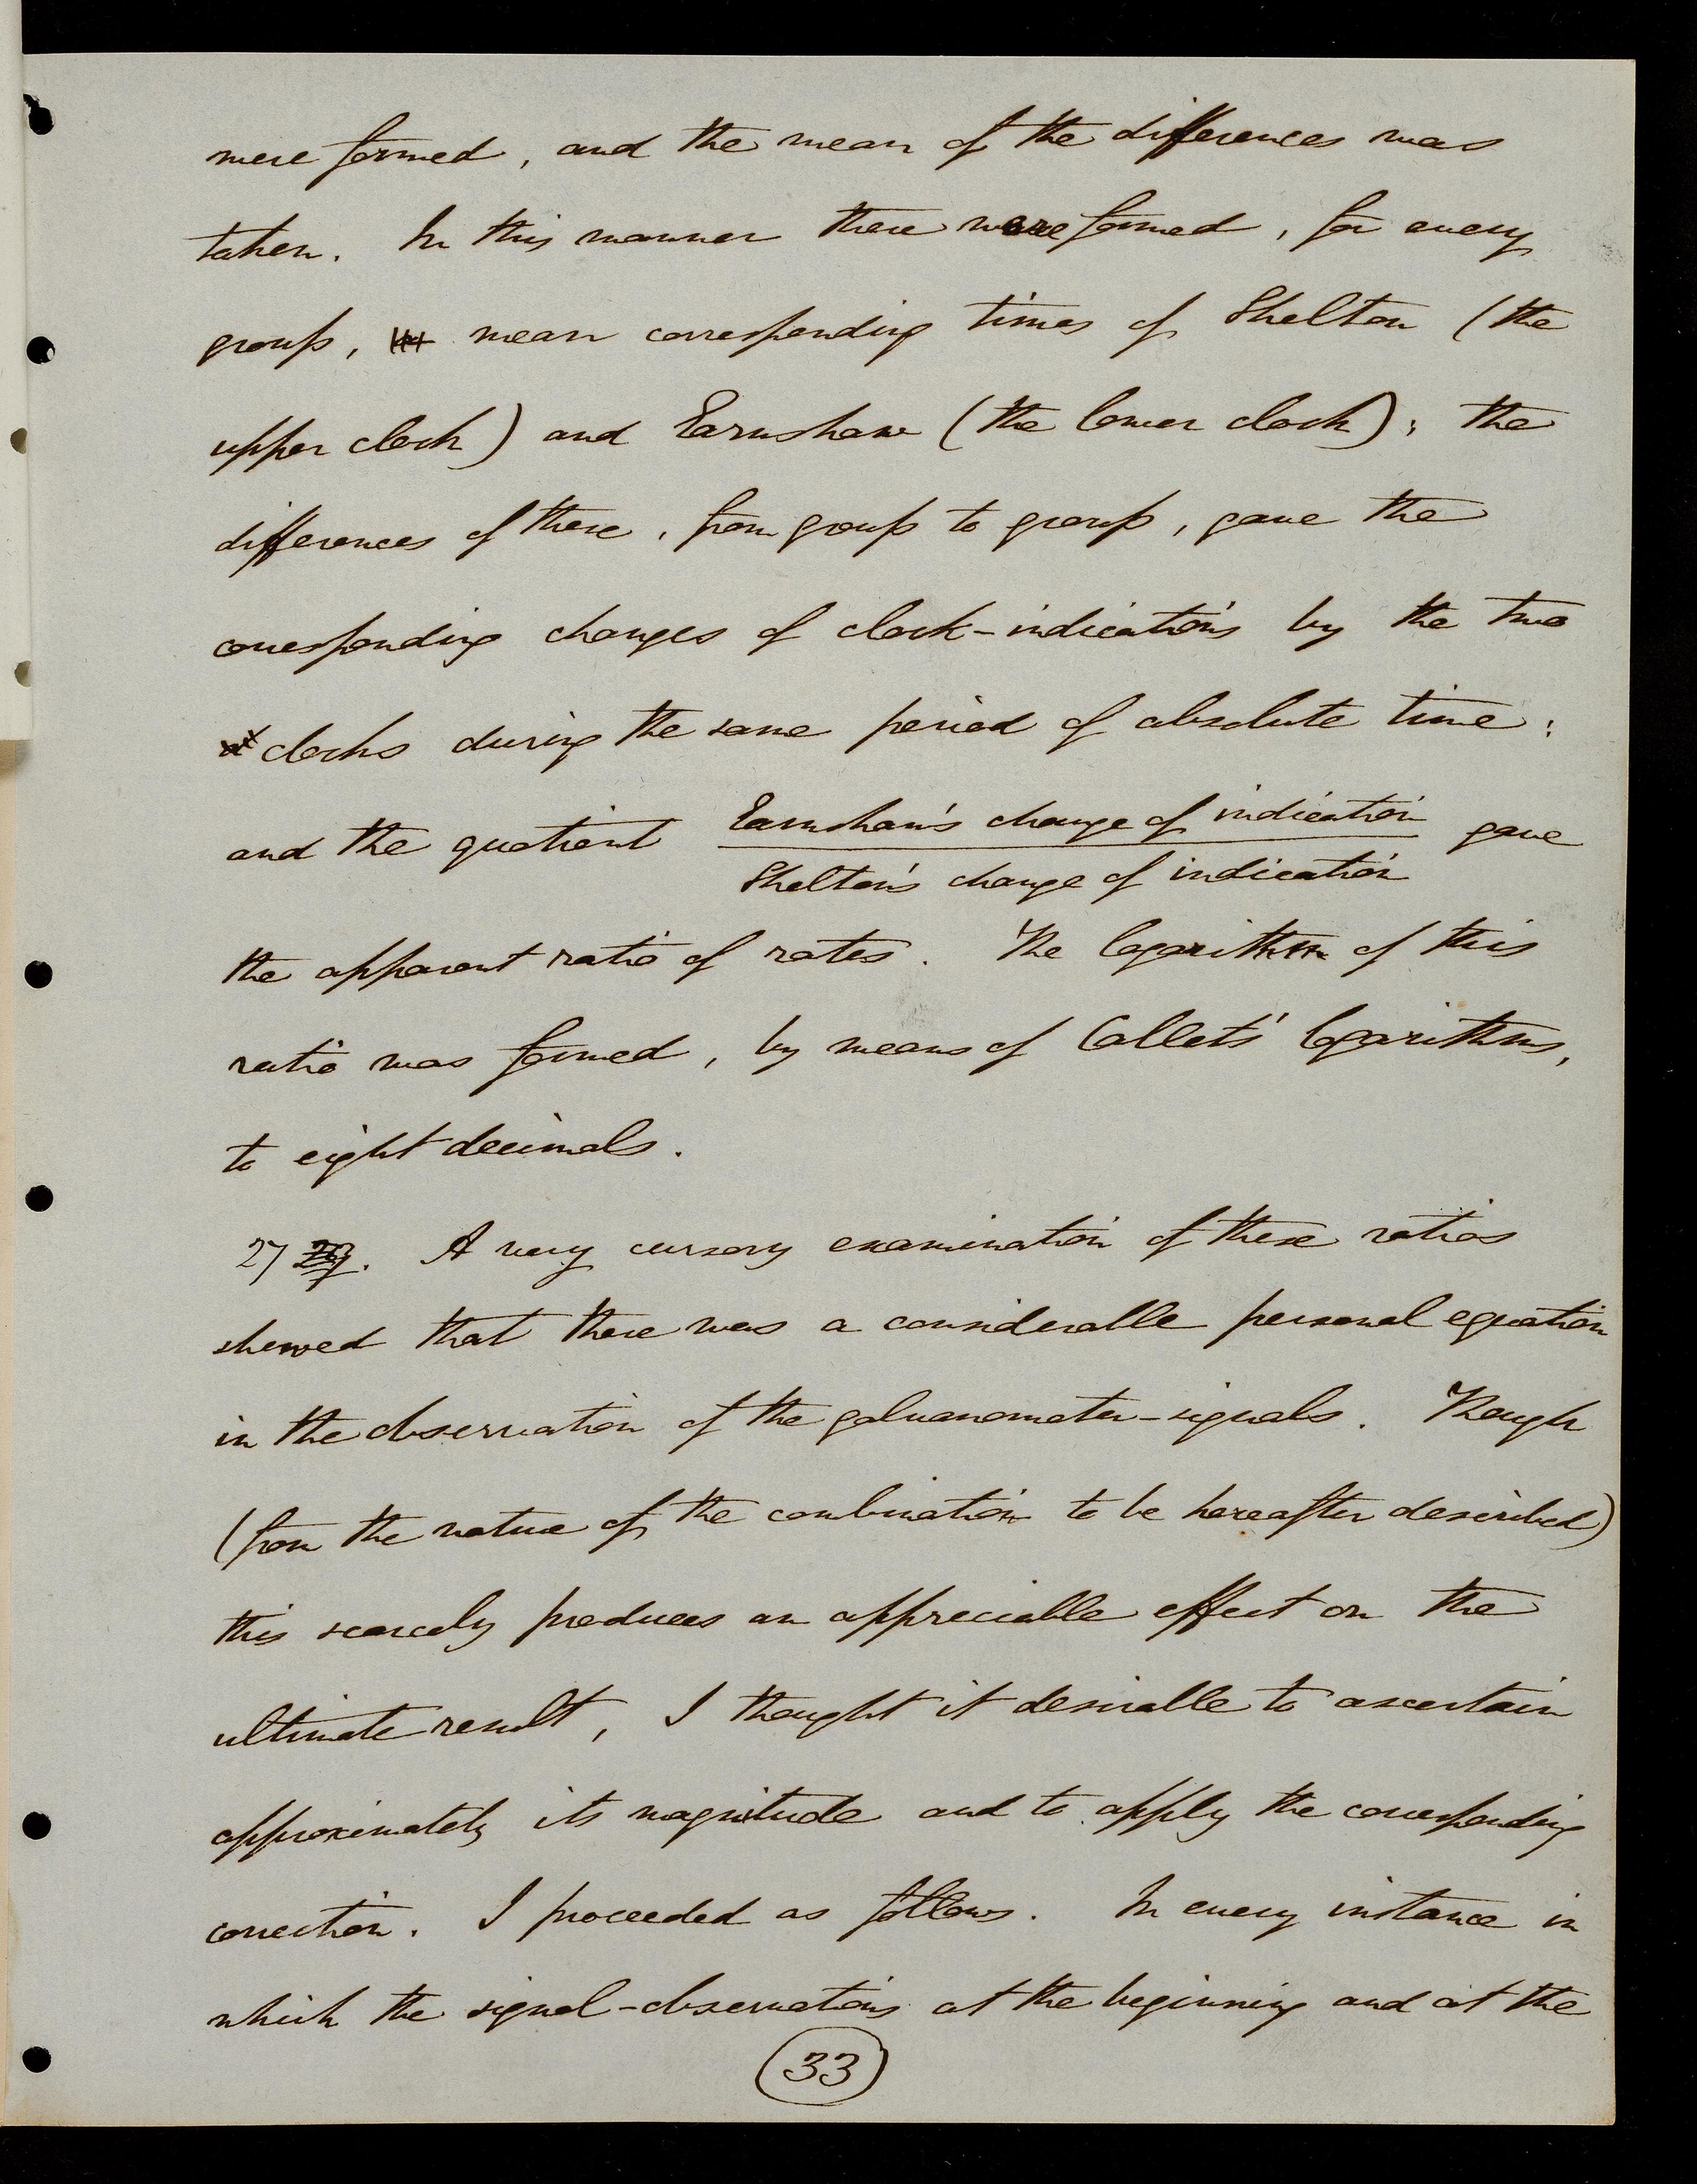 were formed, and the mean of the differences was
taken. In this manner there were formed, for every
group, mean corresponding times of Shelton (the
upper clock) and Earnshaw (the lower clock); the
differences of these, from group to group, gave the
corresponding changes of clock-indications by the two
clocks during the same period of absolute time:
and the quotient Earnshaw's change of indication gave
Shelton's change of indication
the apparent ratio of rates. The logarithm of this
ratio was formed, by means of Callet's logarithms,
to eight decimals.
27. A very cursory examination of these ratios
shewed that there was a considerable personal equation
in the observation of the galvanometer-signals. Though
(from the nature of the combination to be hereafter described)
this scarcely produces an appreciable effect on the
ultimate result, I thought it desirable to ascertain
approximately its magnitude and to apply the corresponding
correction. I proceeded as follows. In every instance in
which the signal-observations at the beginning and at the
33